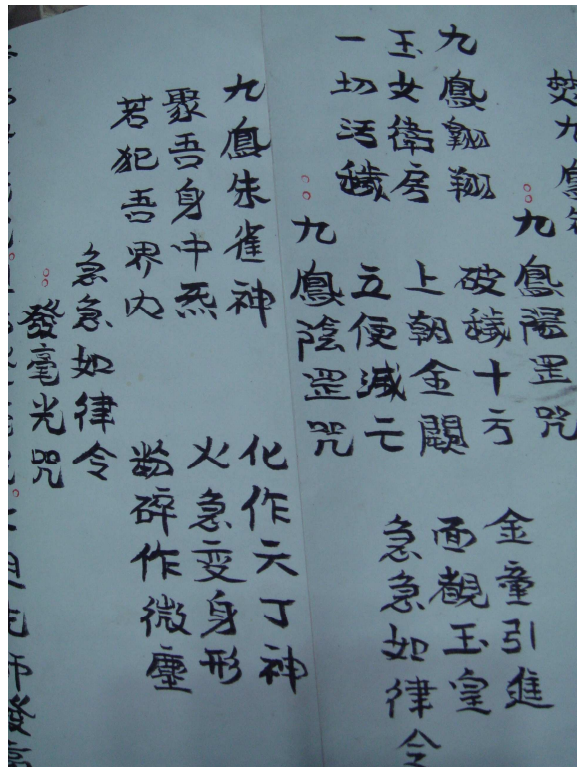 九鳳陽罡咒
九鳳翱翔 破穢十方 金童引進
玉女衛房 上朝金闕 面觀玉皇
一切污穢 立便滅亡 急急如律令
九鳳陰罡咒
九鳳朱雀神 化作天丁神
聚吾身中炁 火急变身形
若犯吾界内 粉碎作微塵
急急如律令
發毫光咒